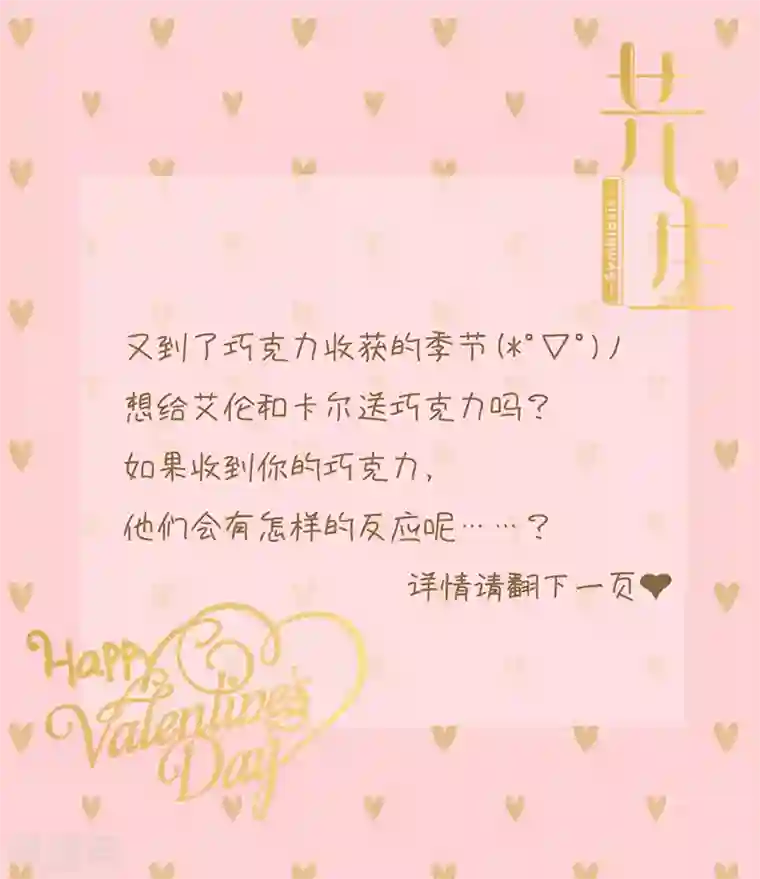 共生
Symbiosis
又到了巧克力收获的季节(*°▽°)ﾉ
想给艾伦和卡尔送巧克力吗？
如果收到你的巧克力，
他们会有怎样的反应呢……？
详情请翻下一页❤
Happy
Valentine's
Day